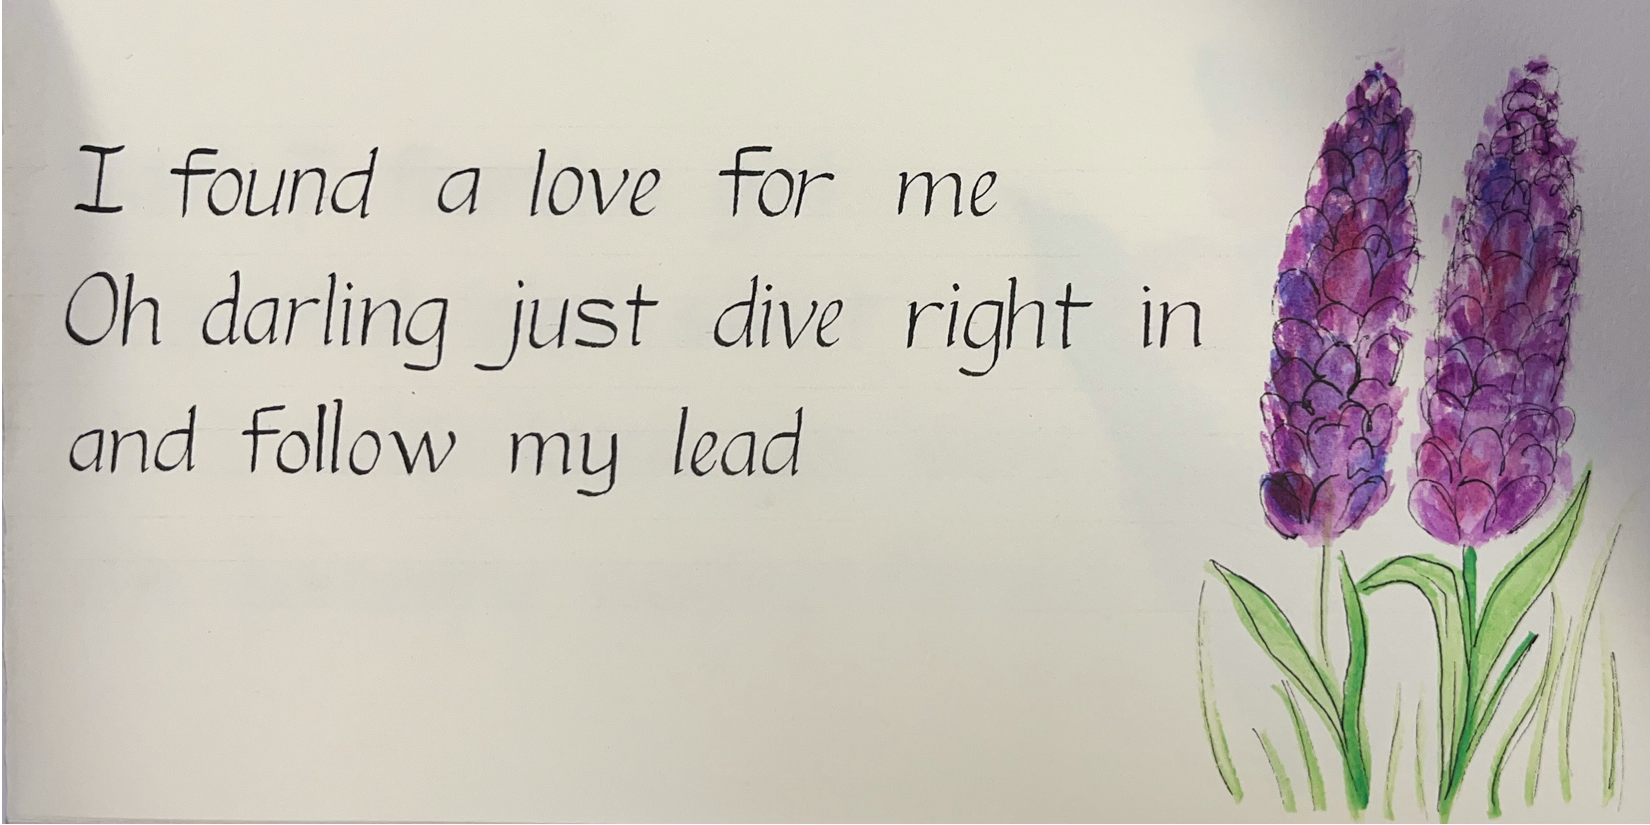 I found a love for me
Oh darling just dive right in
and follow my lead